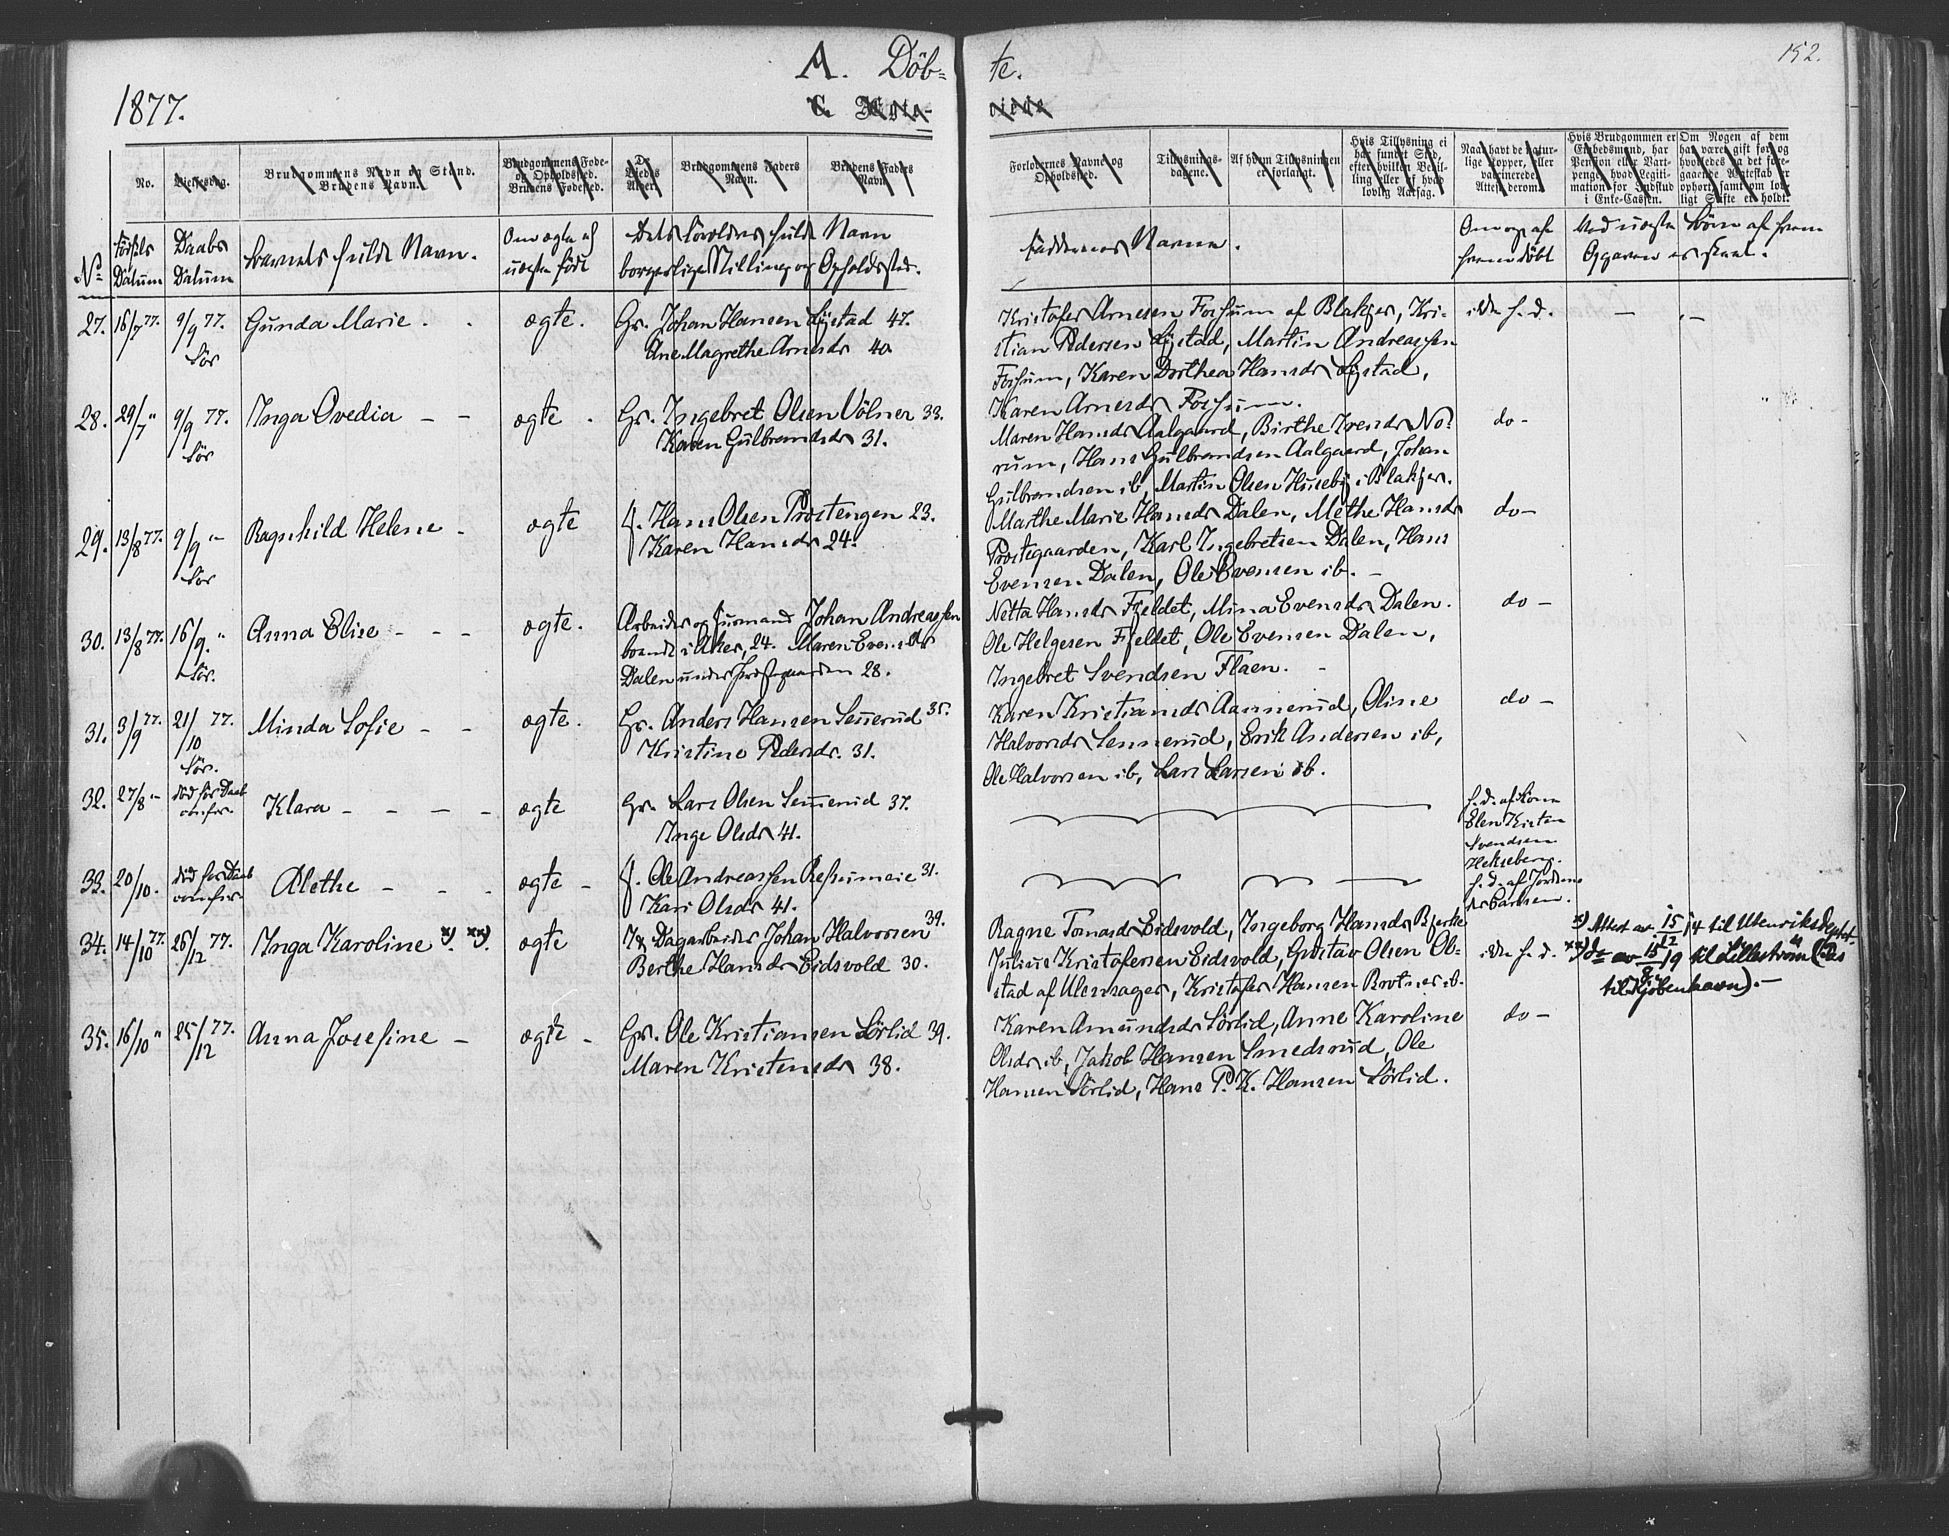 152.
A. Döb- te.
1877. C. Egte- viede
No. Vielsesdag. Brudgommens Navn og Stand. Brudens Navn. Brudgommens Føde- og Opholdssted. Brudens Fødested. De Viedes Alder. Brudgommens Faders Navn. Brudens Faders Navn. Forlovernes Navne og Opholdssted. Tillysnings-dagene. Af hvem Tillysningen er forlangt. Hvis Tillysning ei har fundet Sted, efter hvilken Bevil-ling eller af hvad lovlig Aarsag. Naar havt de natur-lige Kopper, eller vaccinerede. Attest derom. Hvis Brudgommen er Embedsmand, har Pension eller Vart-penge, hvad Legiti-mation for Indskud i Enke-Cassen. Om Nogen af dem har været gift før, og hvorledes da det fore-gaaende Ægteskab er ophørt, samt om lov-ligt Skifte er holdt.
No Fødsels Datum Daabs Datum Barnets fulde Navn. Om ægte el. uægte født Dets Forældres fulde Navn borgerlige Stilling og Opholdssted. Faddernes Navne. Om og af hvem døbt Ved uægte Børn af hvem Opgaven er skeet.
27. 16/7 77. 9/9 77. Sör Gunda Marie . . ægte. Gr. Johan Hansen Lystad 47.
Ane Magrethe Arnesdr 40
Kristofer Arnesen Forsum af Blakjer, Kri-
stian Pedersen Lystad, Martin Andreassen
Forsum, Karen Dorthea Hansdr Lystad,
Karen Arnesdr Forsum.
ikke h. d. — —
28. 29/7 " 9/9 77. Sör Inga Ovedia — — ægte . Gr. Ingebret Olsen Völner 33.
Karen Gulbrandsdr 31.
Maren Hansdr Aalgaard, Birthe Ivensdr No-
rum, Hans Gulbrandsen Aalgaard, Johan
Gulbrandsen ib, Martin Olsen Huseby i Blakjer.
do-
29. 13/8 77. 9/9 "- Sör Ragnhild Helene - ægte J. Hans Olsen Prostengen 23.
Karen Hansdr 24.
Marthe Marie Hansdr Dalen, Methe Hansdr
Prostegaarden, Karl Ingebretsen Dalen, Hans
Evensen Dalen, Ole Evensen ib. -
do-
30. 13/8 77. 16/9. " Sör. Anna Elise - - - ægte. Arbeider og Husmand Johan Andreassen
i Aker, 24. Maren Evensdr
Dalen under Prostegaarden 28.
Netta Hansdr Fjeldet, Mina Evensdr Dalen.
Ole Helgesen Fjeldet, Ole Evensen Dalen,
Ingebret Svendsen Flaen. -
do -
31. 3/9 77. 21/10 77. Sör. Minda Sofie - - ægte. Gr. Anders Hansen Sennerud 35.
Kristine Pedersdr. 31.
Karen Kristiansdr Aannerud, Oline
Halvorsdr Sennerud, Erik Andersen ib,
Ole Halvorsen ib, Lars Larsen ib.
do -
32. 27/8 "- död før Daab Klara - - - - ægte Gr. Lars Olsen Sennerud 37.
Inge Olsdr 41.
h. d. af Kone
Elen Kirsten
Svendsen
Hekseberg.
33. 20/10. död før Daab Alethe - - - ægte - J. Ole Andreassen 31.
Kari Olsdr 41.
h. d. af Jordm
34. 14/10 77. 26/12 77. Inga Karoline x). xx). ægte Dagarbeider Johan Halvorsen 39.
Berthe Hansdr Eidsvold 30.
Ragne Tomasdr Eidsvold, Ingeborg Hansdr Bjerke
Julius Kristofersen Eidsvold, Gustav Olsen Ol-
stad af Ulensager, Kristofer Hansen Brotner ib.
ikke h. d.
x) Attest av 15/12 14 til Utenriksdeptet.
xx) do av 15/8 19 til Lilleström (Pas
til Kjöbenhavn). -
35. 16/10 " 25/12 77. Anna Josefine - ægte - Gr. Ole Kristiansen Sörlid 39.
Maren Kristensdr 38.
Karen Amundsdr Sörlid, Anne Karoline
Olsdr ib, Jakob Hansen Smedsrud, Ole
Hansen Sörlid, Hans P. K. Hansen Sörlid.
do -